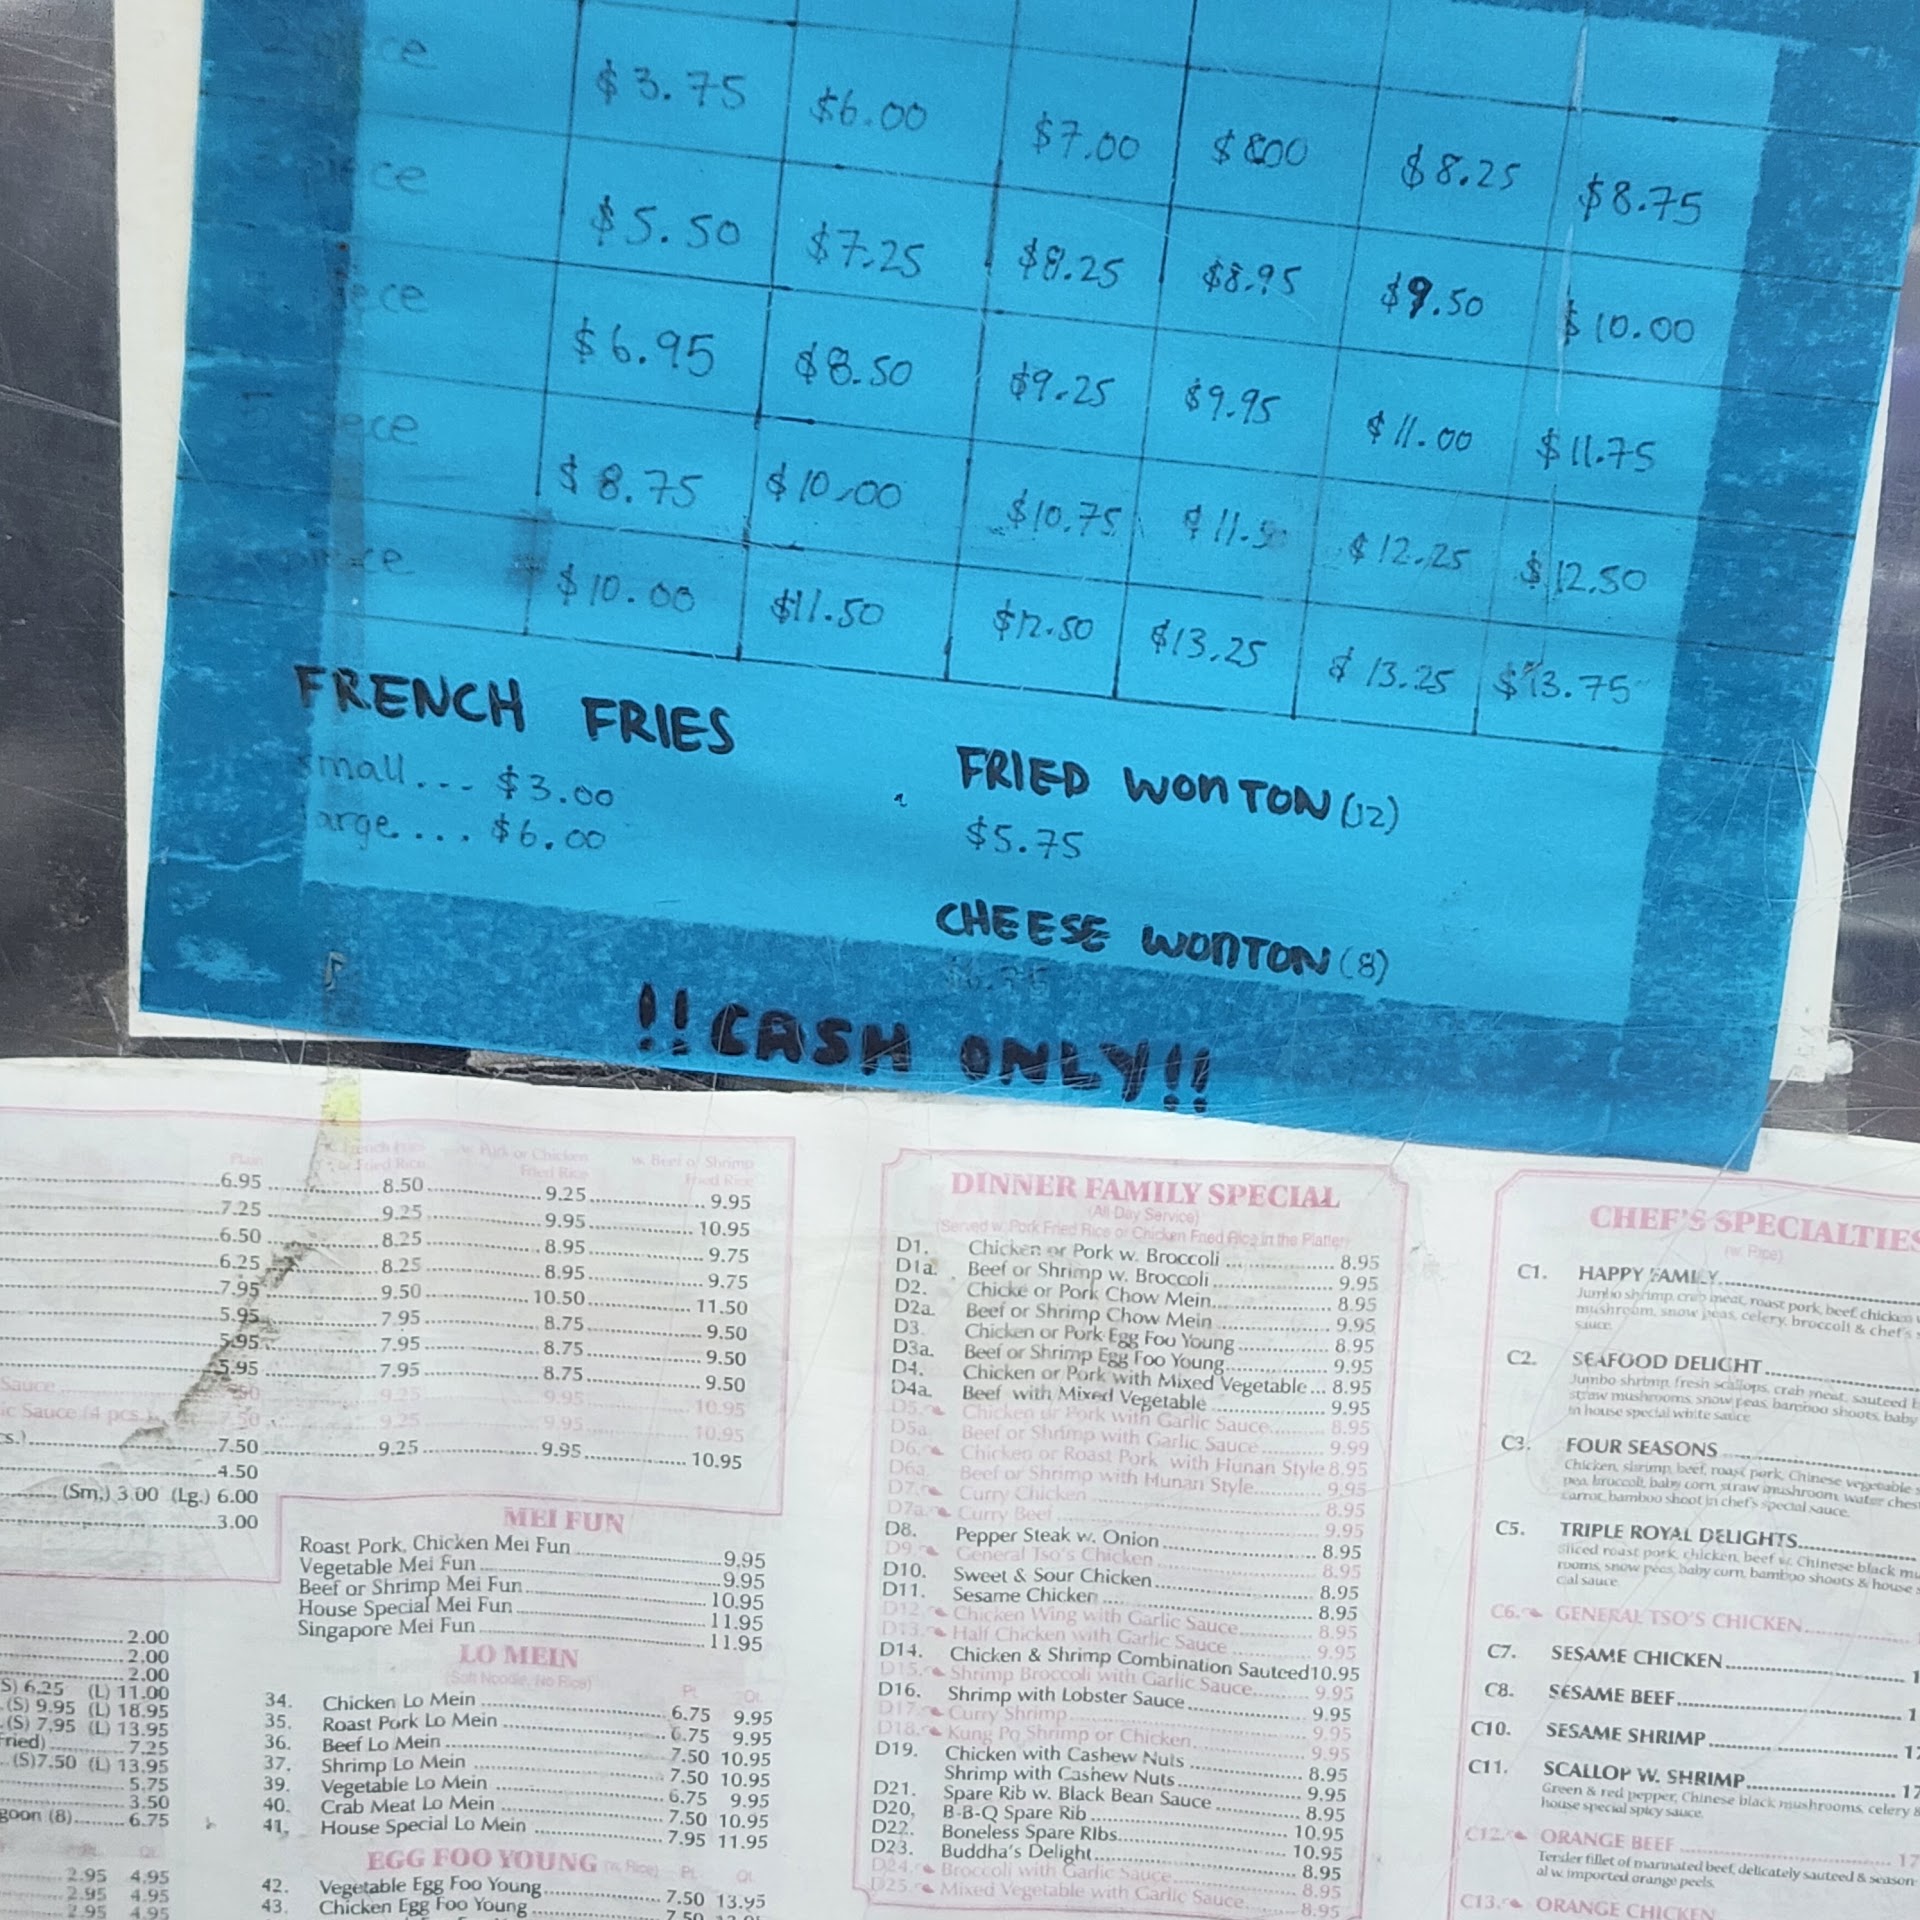 piece
$3.75 $6.00 $7.00 $800 $8.25 $8.75
piece
$5.50 $7.25 $8.25 $8.95 $9.50 $10.00
piece
$6.95 $8.50 $9.25 $9.95 $11.00 $11.75
5 piece
$8.75 $10.00 $10.75 $12.25 $12.50
piece
$10.00 $11.50 $12.50 $13.25 $13.25 $13.75
FRENCH FRIES
small... $3.00
arge.... $6.00
FRIED WONTON (12)
$5.75
CHEESE WONTON (8)
!!CASH ONLY!!
Plain French Fries w. Pork or Chicken w. Beef or Shrimp
or Fried Rice Fried Rice Fried Rice
6.95 8.50 9.25 9.95
7.25 9.25 9.95 10.95
6.50 8.25 8.95 9.75
6.25 8.25 8.95 9.75
7.95 9.50 10.50 11.50
5.95 7.95 8.75 9.50
5.95 7.95 8.75 9.50
5.95 7.95 8.75 9.50
Sauce 9.25 9.95 10.95
ic Sauce (4 pcs.) 7.50 9.25 9.95 10.95
cs.) 7.50 9.25 9.95 10.95
4.50
(Sm.) 3.00 (Lg.) 6.00
3.00
2.00
2.00
2.00
S) 6.25 (L) 11.00
(S) 9.95 (L) 18.95
(S) 7.95 (L) 13.95
Fried) 7.25
(S)7.50 (L) 13.95
5.75
3.50
goon (8) 6.75
Pt. Qt.
2.95 4.95
2.95 4.95
2.95 4.95
MEI FUN
Roast Pork, Chicken Mei Fun 9.95
Vegetable Mei Fun 9.95
Beef or Shrimp Mei Fun 10.95
House Special Mei Fun 11.95
Singapore Mei Fun 11.95
LO MEIN
(Soft Noodle, No Rice) Pt. Qt.
34. Chicken Lo Mein 6.75 9.95
35. Roast Pork Lo Mein 6.75 9.95
36. Beef Lo Mein 7.50 10.95
37. Shrimp Lo Mein 7.50 10.95
39. Vegetable Lo Mein 6.75 9.95
40. Crab Meat Lo Mein 7.50 10.95
41. House Special Lo Mein 7.95 11.95
EGG FOO YOUNG (w. Rice) Pt. Qt.
42. Vegetable Egg Foo Young 7.50 13.95
43. Chicken Egg Foo Young 7.50
DINNER FAMILY SPECIAL
(All Day Service)
(Served w. Pork Fried Rice or Chicken Fried Rice in the Platter)
D1. Chicken or Pork w. Broccoli 8.95
D1a. Beef or Shrimp w. Broccoli 9.95
D2. Chicke or Pork Chow Mein 8.95
D2a. Beef or Shrimp Chow Mein 9.95
D3. Chicken or Pork Egg Foo Young 8.95
D3a. Beef or Shrimp Egg Foo Young 9.95
D4. Chicken or Pork with Mixed Vegetable... 8.95
D4a. Beef with Mixed Vegetable 9.95
D5. Chicken or Pork with Garlic Sauce 8.95
D5a. Beef or Shrimp with Garlic Sauce 9.99
D6. Chicken or Roast Pork with Hunan Style 8.95
D6a. Beef or Shrimp with Hunan Style 9.95
D7. Curry Chicken 8.95
D7a. Curry Beef 9.95
D8. Pepper Steak w. Onion 8.95
D9. General Tso's Chicken 8.95
D10. Sweet & Sour Chicken 8.95
D11. Sesame Chicken 8.95
D12. Chicken Wing with Garlic Sauce 8.95
D13. Half Chicken with Garlic Sauce 9.95
D14. Chicken & Shrimp Combination Sauteed 10.95
D15. Shrimp Broccoli with Garlic Sauce 9.95
D16. Shrimp with Lobster Sauce 9.95
D17. Curry Shrimp 9.95
D18. Kung Po Shrimp or Chicken 9.95
D19. Chicken with Cashew Nuts 8.95
Shrimp with Cashew Nuts 9.95
D21. Spare Rib w. Black Bean Sauce 8.95
D20. B-B-Q Spare Rib 10.95
D22. Boneless Spare RIbs 10.95
D23. Buddha's Delight 8.95
D24. Broccoli with Garlic Sauce 8.95
D25. Mixed Vegetable with Garlic Sauce 8.95
CHEF'S SPECIALTIES
(w. Rice)
C1. HAPPY FAMILY
Jumbo shrimp, crab meat, roast pork, beef, chicken
mushroom, snow peas, celery, broccoli & chef's
sauce
C2. SEAFOOD DELIGHT
Jumbo shrimp, fresh scallops, crab meat, sauteed
straw mushrooms, snow peas, bamboo shoots, baby
in house special white sauce
C3. FOUR SEASONS
Chicken, shrimp, beef, roast pork, Chinese vegetable
pea, broccoli, baby corn, straw mushroom, water
carrot, bamboo shoot in chef's special sauce.
C5. TRIPLE ROYAL DELIGHTS
Sliced roast pork, chicken, beef w. Chinese black
rooms, snow peas, baby corn, bamboo shoots & house
cial sauce
C6. GENERAL TSO'S CHICKEN
C7. SESAME CHICKEN
C8. SESAME BEEF
C10. SESAME SHRIMP
C11. SCALLOP W. SHRIMP
Green & red pepper, Chinese black mushrooms, celery &
house special spicy sauce.
C12. ORANGE BEEF
Tender fillet of marinated beef, delicately sauteed & season
al w. imported orange peels.
C13. ORANGE CHICKEN